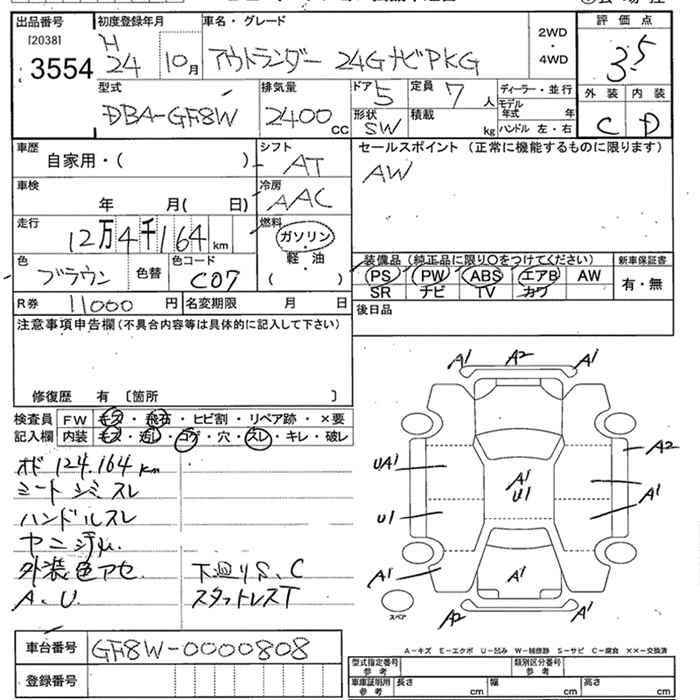 出品番号 初度登録年月 車名・グレード 評価点
[2038] H
3554 24 10月 アウトランダー 24GナビPKG 2WD・4WD 3.5
型式 排気量 ドア 5 定員 7人 ディーラー・並行 外装 内装
DBA-GF8W 2400cc 形状 SW 積載 kg モデル年式 年 C D
ハンドル 左・右
車歴 自家用・( ) シフト AT セールスポイント (正常に機能するものに限ります)
車検 年 月( 日) 冷房 AAC AW
走行 12万4千164km 燃料 ガソリン・軽・油 ( )
色 ブラウン 色替 色コード C07
装備品 (純正品に限り○をつけてください) 新車保証書
PS PW ABS エアB AW 有・無
SR ナビ TV カワ
R券 11000円 名変期限 月 日 後日品
注意事項申告欄(不具合内容等は具体的に記入して下さい)
修復歴 有 〔箇所 〕
検査員 FW キズ・飛石・ヒビ割・リペア跡・×要
記入欄 内装 キズ・汚レ・コゲ・穴・スレ・キレ・破レ
オド 124.164km
シート シミ スレ
ハンドルスレ
ヤニ汚れ
外装色アセ 下廻りS、C
A.U. スタットレスT
A1 A2 A1
A2
UA1 A1 U1 A1
U1
A1 A1
A2 A1
スペア
車台番号 GF8W-0000808
登録番号
A-キズ E-エクボ U-凹み W-補修跡 S-サビ C-腐食 XX-交換済
型式指定番号 参考 類別区分番号 参考
車庫証明用 参考 長さ cm 幅 cm 高さ cm